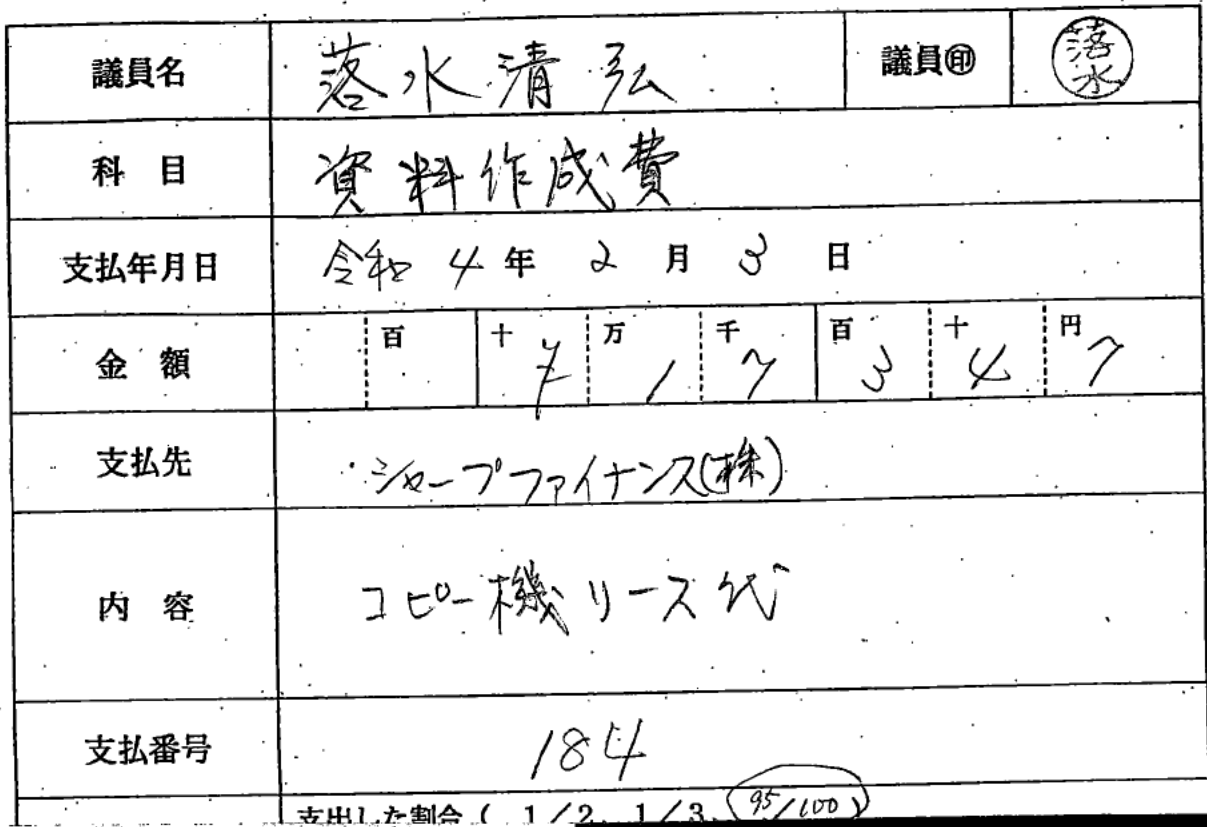 議員名 落水清弘 議員㊞ 落水
科目 資料作成費
支払年月日 令和4年2月3日
金額 百 十 ¥ 万 1 千 7 百 3 十 4 円 7
支払先 シャープファイナンス(株)
内容 コピー機リース代
支払番号 184
支出した割合 ( 1/2, 1/3, 95/100 )